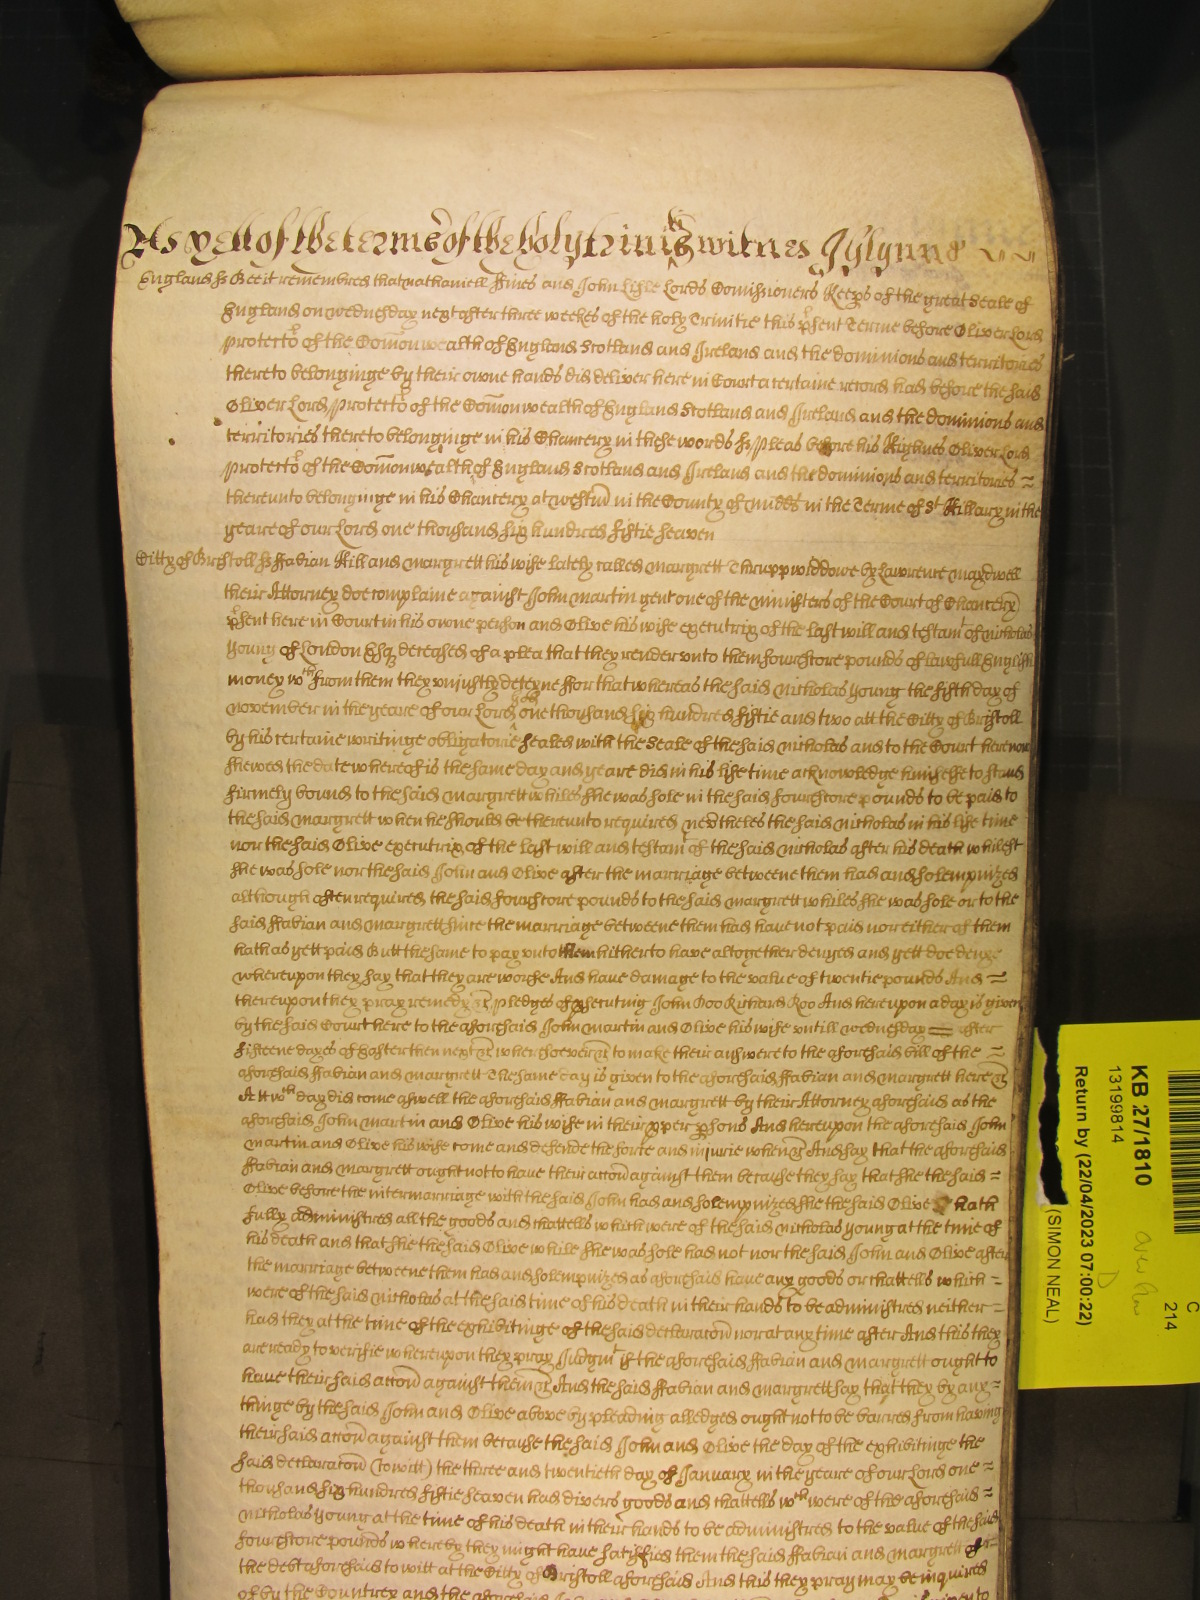 As yett of the terme of the holy trinity witnes J Glynne
England ss Bee it remembred that Nathaniell ffines and John Lisle Lords Comissioners Keeps of the great Seale of
England on wednesday next after three weekes of the holy Trinitie this psent Terme before Oliver Lord
protector of the Comonwealth of England Scotland and Ireland and the dominions and territories
thereto belonginge by their owne hands did deliver here in Court a certaine record had before the said
Oliver Lord Protector of the Comonwealth of England Scotland and Ireland and the dominions and
territories thereto belonginge in his Chancery in these words ss Pleas before his Highnes Oliver Lord
protector of the Comonwealth of England Scotland and Ireland and the dominions and territories =
thereunto belonginge in his Chancery at westm in the County of midds in the Terme of St Hillary in the
yeare of our Lord one thousand six hundred fiftie seaven
Citty of Bristoll ss ffabian Hill and margrett his wife lately called margrett Thrupp widdowe by Lawrence maydwell
their Attorney doe complaine against John martin gent one of the ministers of the Court of Chancery
psent here in Court in his owne person and Olive his wife executrix of the last will and testamt of nicholas
Young of London Esq deceased of a plea that they render unto them fourscore pounds of lawfull English
money wch from them they uniustly deteyne ffor that whereas the said nicholas Young the fifth day of
november in the yeare of our Lord god one thousand six hundred fiftie and two att the Citty of Bristoll
by his certaine writinge obligatorie sealed with the Seale of the said nicholas and to the Court here now
shewed the date whereof is the same day and yeare did in his life time acknowledge himselfe to stand
firmely bound to the said margrett whiles shee was sole in the said fourscore pounds to be paid to
the said margrett when he should be thereunto required nevtheles the said nicholas in his life time
nor the said Olive executrix of the last will and testamt of the said nicholas after his death whilest
shee was sole nor the said John and Olive after the marriage betweene them had and solempnized
although often required the said fourscore pounds to the said margrett whiles shee was sole or to the
said ffabian and margrett since the marriage betweene them had have not paid nor either of them
hath as yett paid Butt the same to pay unto them hitherto have altogether denyed and yett doe denye
whereupon they say that they are worse And have damage to the value of twentie pounds And =
thereupon they pray remedy &c Pledges of psecuting John Doo Richard Roo And hereupon a day is given
by the said Court here to the aforesaid John martin and Olive his wife untill wednesday = after
fifteene dayes of Easter then next &c wheresoever &c to make their answere to the aforesaid bill of the =
aforesaid ffabian and margrett The same day is given to the aforesaid ffabian and margrett here &c
Att wch day did come aswell the aforesaid ffabian and margrett by their Attorney aforesaid as the
aforesaid John martin and Olive his wife in their pper psons And hereupon the aforesaid John
martin and Olive his wife come and defende the force and iniurie when &c And say that the aforesaid
ffabian and margrett ought not to have their accon against them because they say that shee the said =
Olive before the intermarriage with the said John had and solempnized shee the said Olive hath
fully administred all the goods and chattells which were of the said nicholas Young at the time of
his death and that shee the said Olive while shee was sole had not nor the said John and Olive after
the marriage betweene them had and solempnized as aforesaid have any goods or chattells which =
were of the said nicholas at the said time of his death in their hands to be administred neither =
had they at the time of the exhibitinge of the said declaracon nor at any time after And this they
are ready to verifie whereupon they pray Judgmt if the aforesaid ffabian and margrett ought to
have their said accon against them &c And the said ffabian and margrett say that they by any =
thinge by the said John and Olive above by pleading alledged ought not to be barred from having
their said accon against them because the said John and Olive the day of the exhibitinge the
said declaracon (to witt) the three and twentieth day of January in the yeare of our Lord one =
thousand six hundred fiftie seaven had divers goods and chattells wch were of the aforesaid =
nicholas Young at the time of his death in their hands to be administred to the value of the said
fourscore pounds whereby they might have satisfied them the said ffabian and margrett of =
the debt aforesaid to witt at the Citty of Bristoll aforesaid And this they pray may be inquired
of by the Countrey and the aforesaid
KB 27/1810
13199814
Return by (22/04/2023 07:00:22)
(SIMON NEAL)
C
214